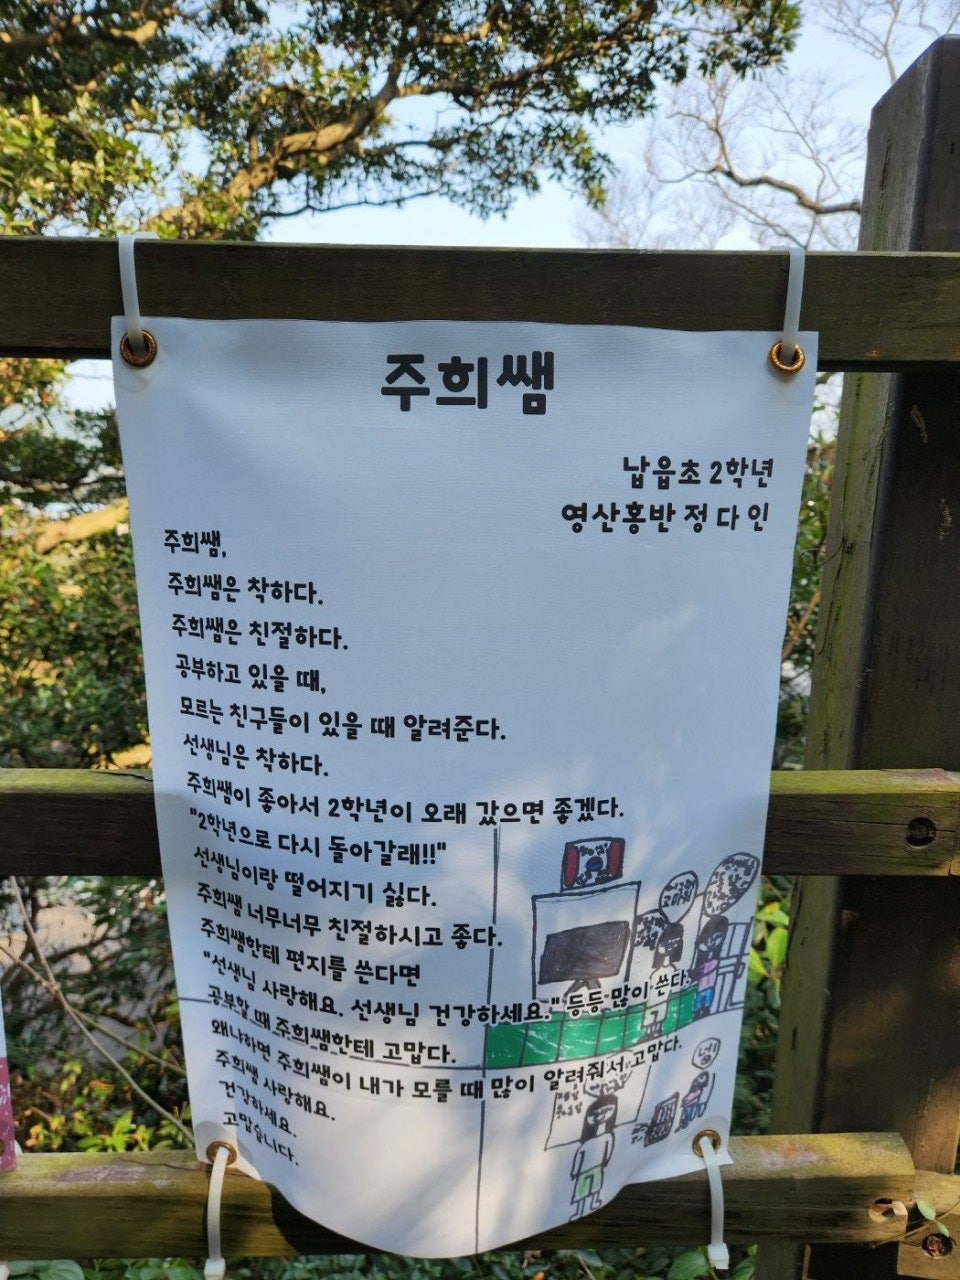 주희쌤
납읍초 2학년
영산홍반 정다인
주희쌤,
주희쌤은 착하다.
주희쌤은 친절하다.
공부하고 있을 때,
모르는 친구들이 있을 때 알려준다.
선생님은 착하다.
주희쌤이 좋아서 2학년이 오래 갔으면 좋겠다.
"2학년으로 다시 돌아갈래!!"
선생님이랑 떨어지기 싫다.
주희쌤 너무너무 친절하시고 좋다.
주희쌤한테 편지를 쓴다면
"선생님 사랑해요. 선생님 건강하세요." 등등 많이 쓴다.
공부할 때 주희쌤한테 고맙다.
왜냐하면 주희쌤이 내가 모를 때 많이 알려줘서 고맙다.
주희쌤 사랑해요.
건강하세요.
고맙습니다.
넹!